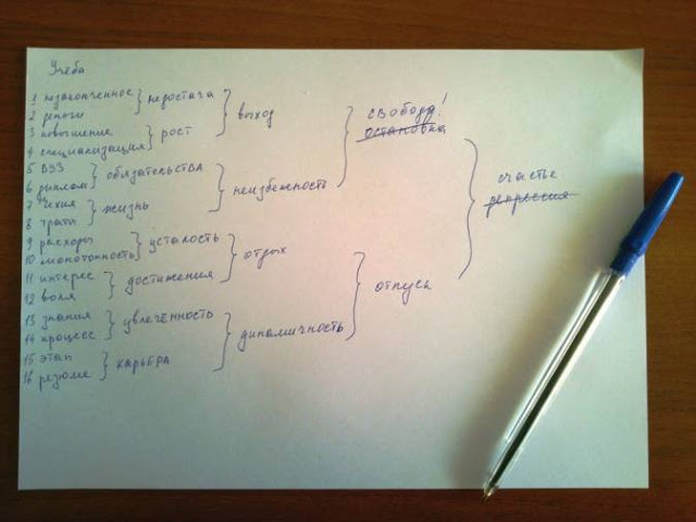 Учёба
1 незаконченное
2 деньги
3 повышение
4 специализация
5 ВУЗ
6 диплом
8 траты
9 расходы
10 монотонность
11 интерес
12 воля
13 знания
14 процесс
15 этап
16 резюме
недостача
рост
обязательства
жизнь
усталость
достижения
увлечённость
карьера
выход
неизбежность
отдых
динамичность
свобода!
остановка
отпуск
счастье
депрессия